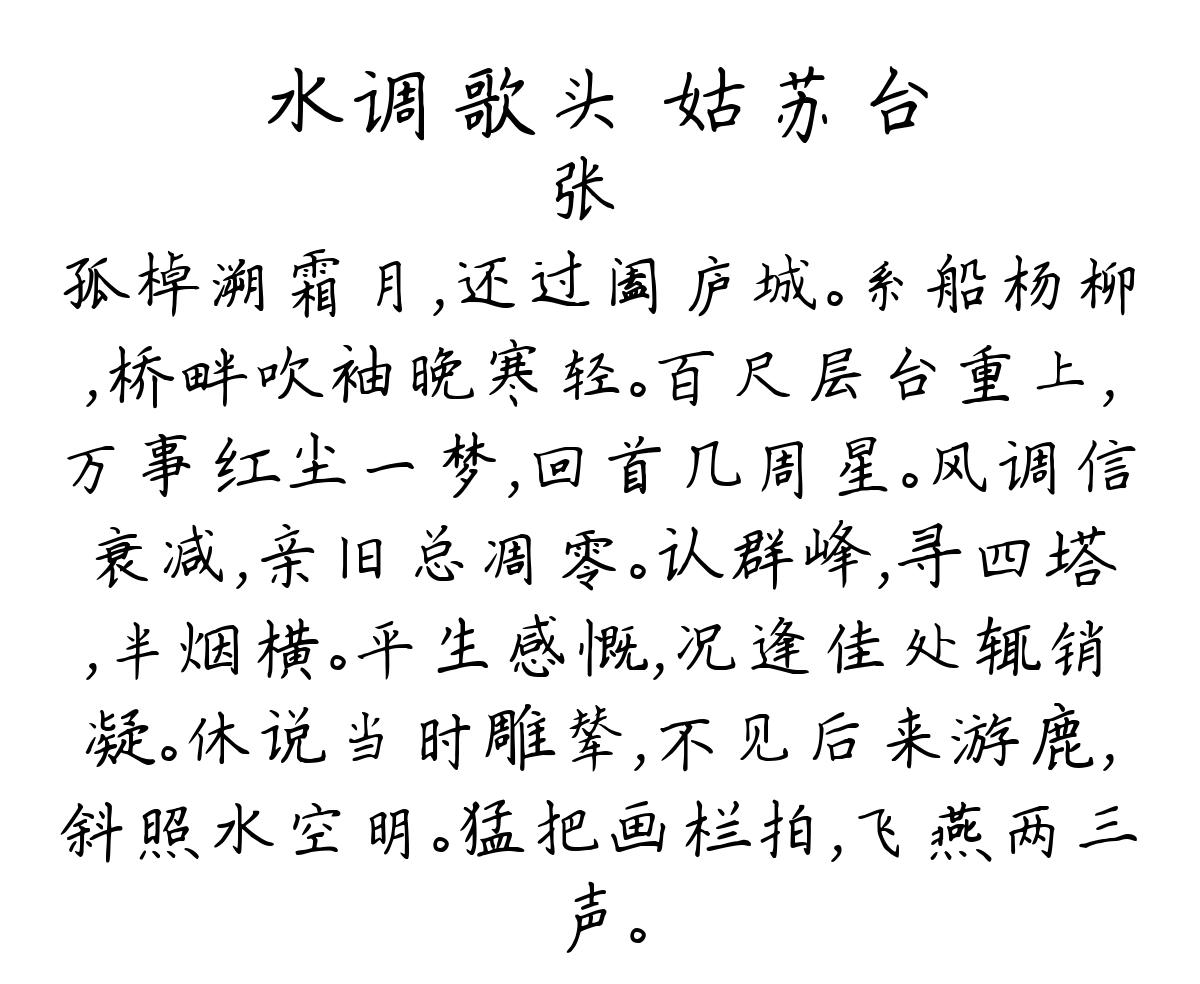 水调歌头 姑苏台
张
孤棹溯霜月,还过阖庐城。系船杨柳
,桥畔吹袖晚寒轻。百尺层台重上,
万事红尘一梦,回首几周星。风调信
衰减,亲旧总凋零。认群峰,寻四塔
,半烟横。平生感慨,况逢佳处辄销
凝。休说当时雕辇,不见后来游鹿,
斜照水空明。猛把画栏拍,飞燕两三
声。